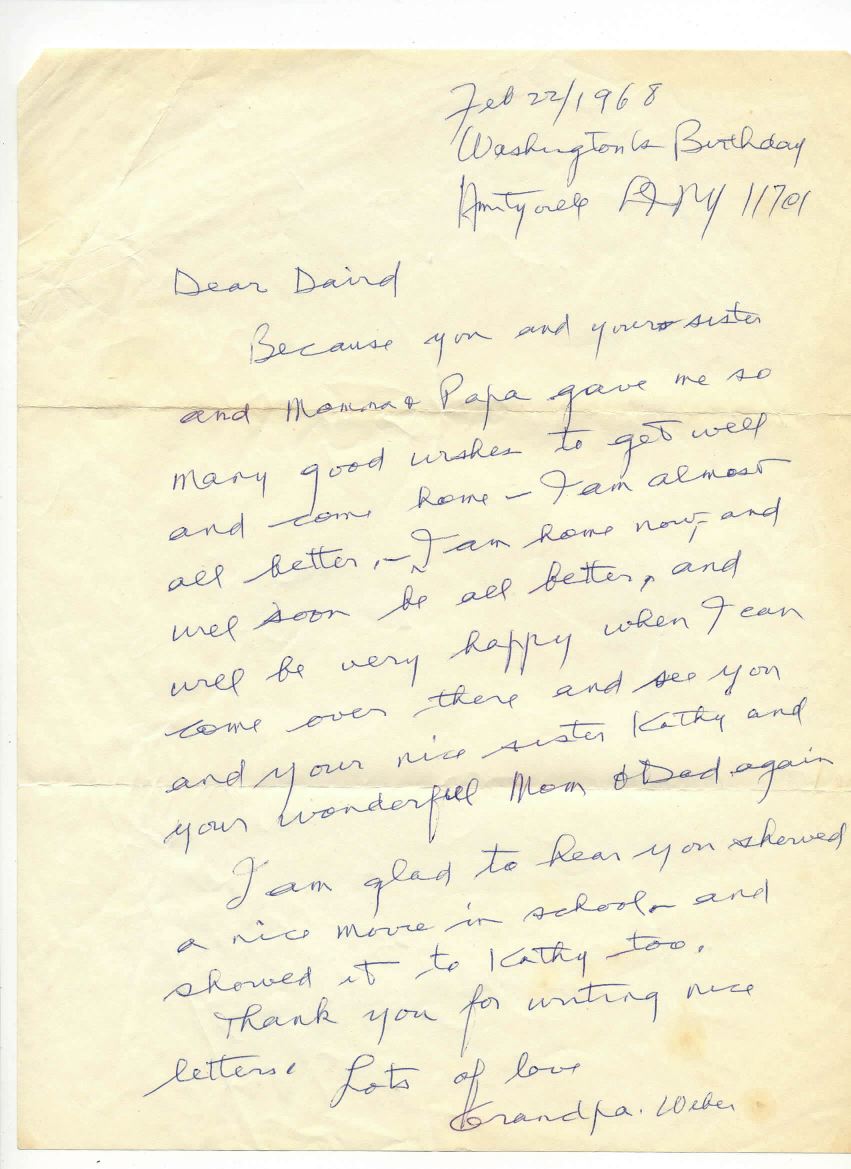 Feb 22/1968
Washington's Birthday
Amityville LI NY 11701
Dear David
Because you and your sister
and Momma & Papa gave me so
many good wishes to get well
and come home - I am almost
all better, - I am home now, and
will soon be all better, and
will be very happy when I can
come over there and see you
and your nice sister Kathy and
your wonderful Mom & Dad again
I am glad to hear you showed
a nice movie in school and
showed it to Kathy too.
Thank you for writing nice
letters. Lots of love
Grandpa. Weber